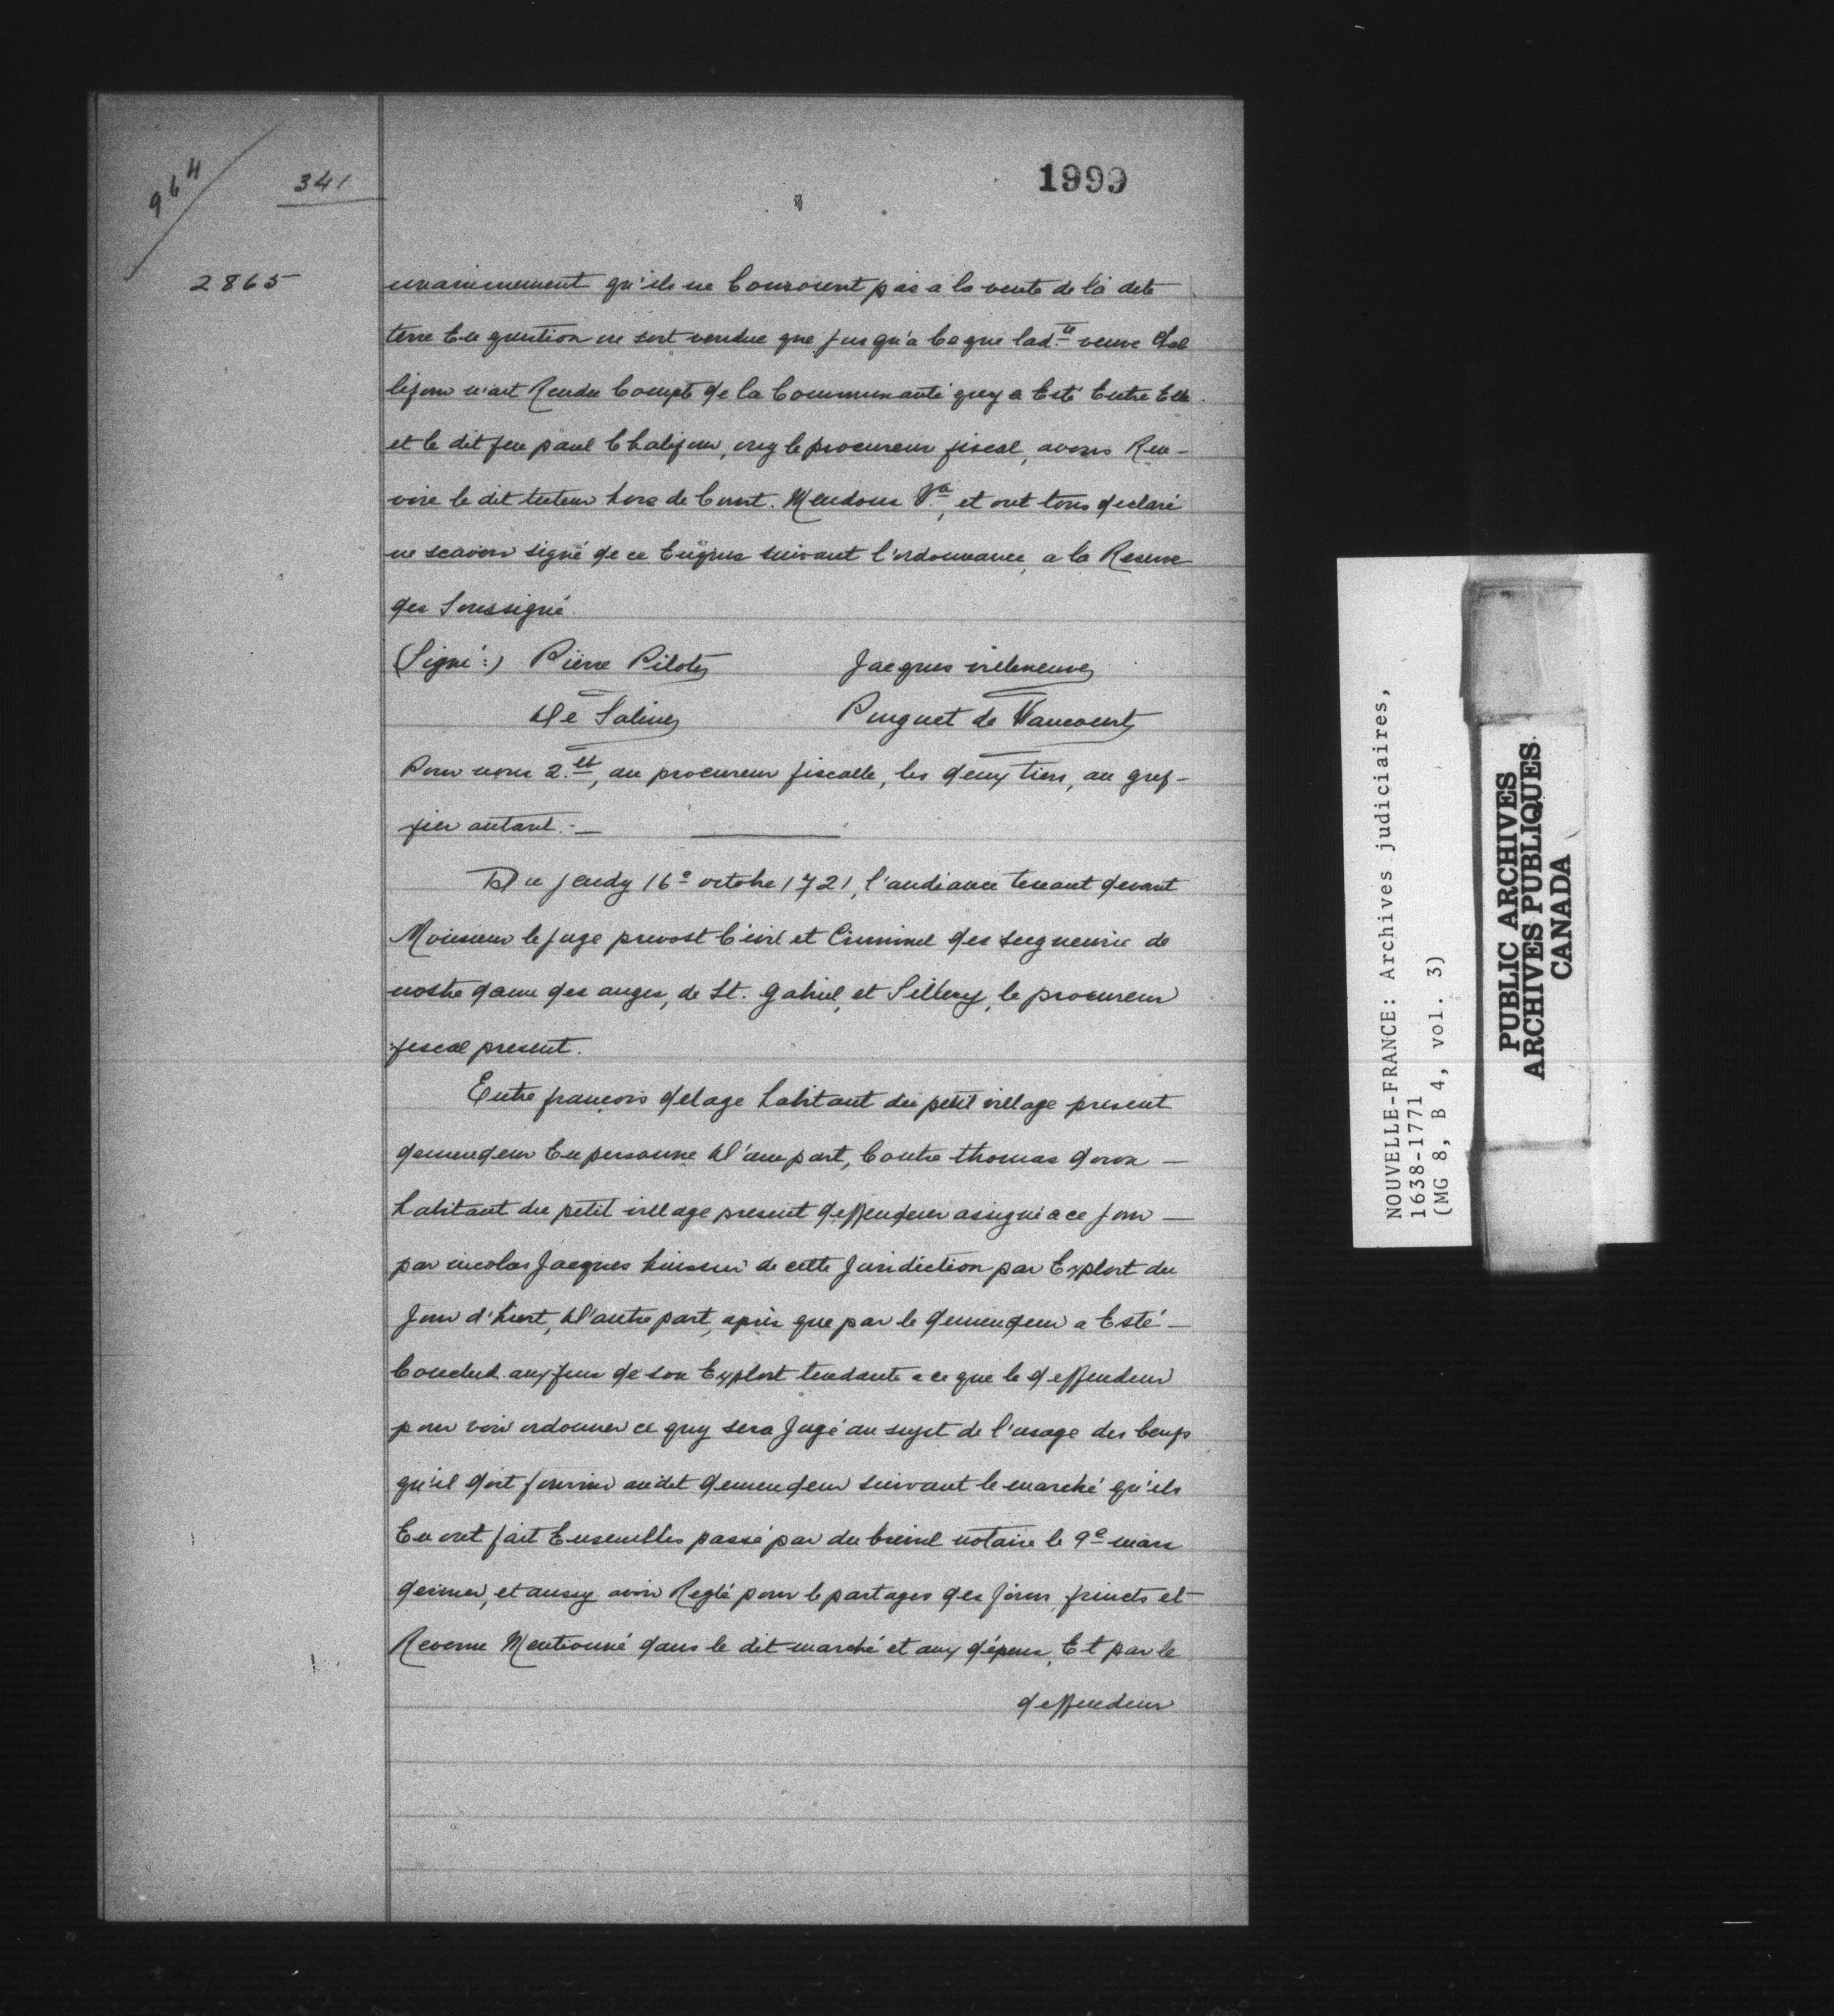 964
341
1999
2865
unanimement qu'ils ne consoient pas a la vente de la dite
terre En question ne soit vendue que jusqu'a Ce que lad.te veuve Chal
lifour n'ait Rendu Compte de la Communauté quy a Esté Entre Elle
et le dit feu paul Chalifour, ouy le procureur fiscal, avons Ren-
voié le dit tuteur hors de Court. Mendons &a, et ont tous declaré
ne scavoir signé de ce Enquis suivant l'ordonnance, a la Reserve
des Soussigné.
(Signé:) Pierre Pilote
Jacques villeneuve
De Saline
Puguet de Vaucourt
Pour nous 2.lt, au procureur fiscalle, les deux tiers, au gref-
fier autant.—
Du jeudy 16e octobre 1721, l'audiance tenant devant
Monsieur le juge prevost Civil et Criminel des seigneurie de
nostre dame des anges, de St. gabriel, et Sillery, le procureur
fiscal present.
Entre françois delage habitant du petit village present
demendeur En personne D'une part, Contre thomas doron —
habitant du petit village present deffendeur assigné a ce jour —
par nicolas Jacques huissier de cette Juridiction par Exploit du
Jour d'hiert, D'autre part, après que par le demendeur a Esté —
Conclud aux fins de son Exploit tendante a ce que le deffendeur
pour voir ordonner ce quy sera Jugé au sujet de l'usage des beufs
qu'il doit fournir audit demendeur suivant le marché qu'ils
En ont fait Ensembles passé par du breuil notaire le 9e mars
dernier, et aussy avoir Reglé pour le partages des foins, fruicts et
Revenu Mentionné dans le dit marché et aux dépens, Et par le
deffendeur
NOUVELLE-FRANCE: Archives judiciaires,
1638-1771
(MG 8, B 4, vol. 3)
PUBLIC ARCHIVES
ARCHIVES PUBLIQUES
CANADA